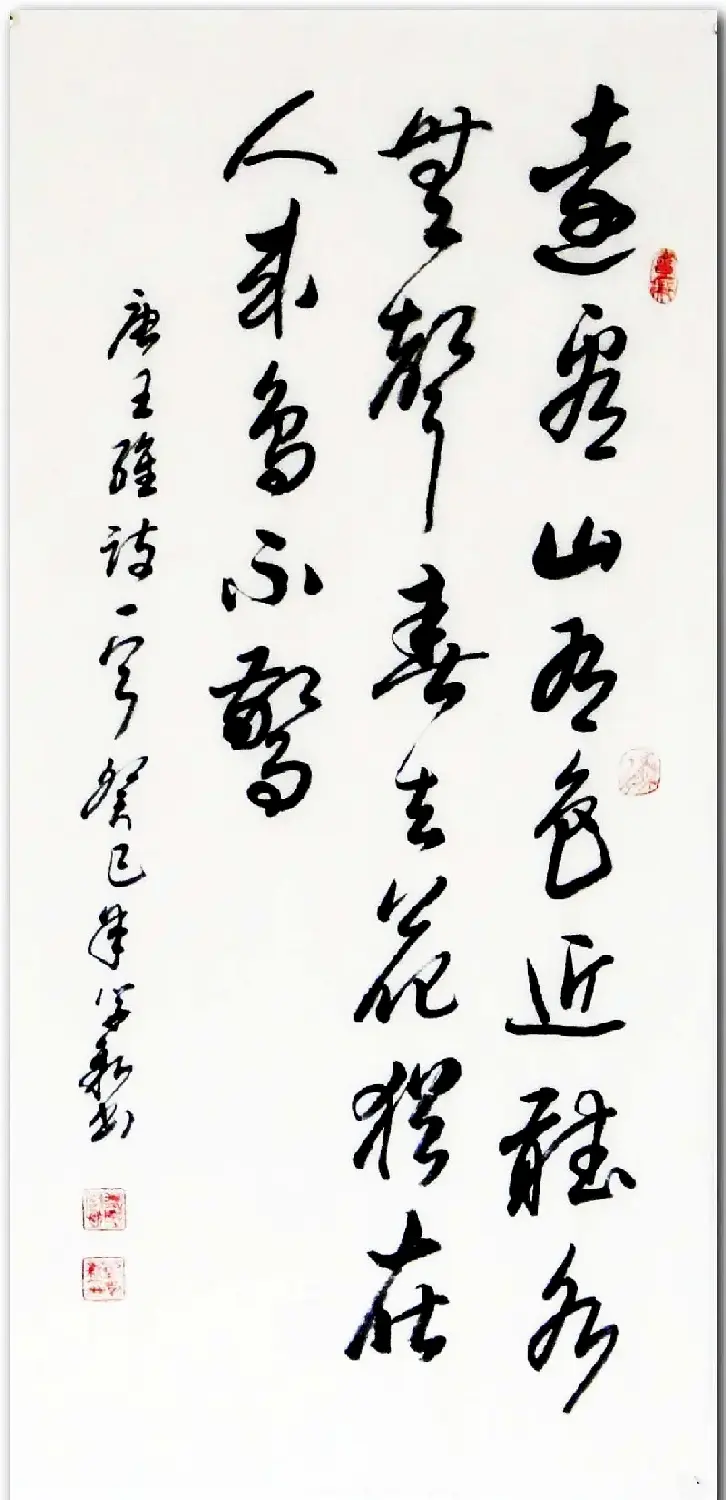 遠看山有色近聽水
無聲春去花猶在
人來鳥不驚
唐王維詩一首癸巳年